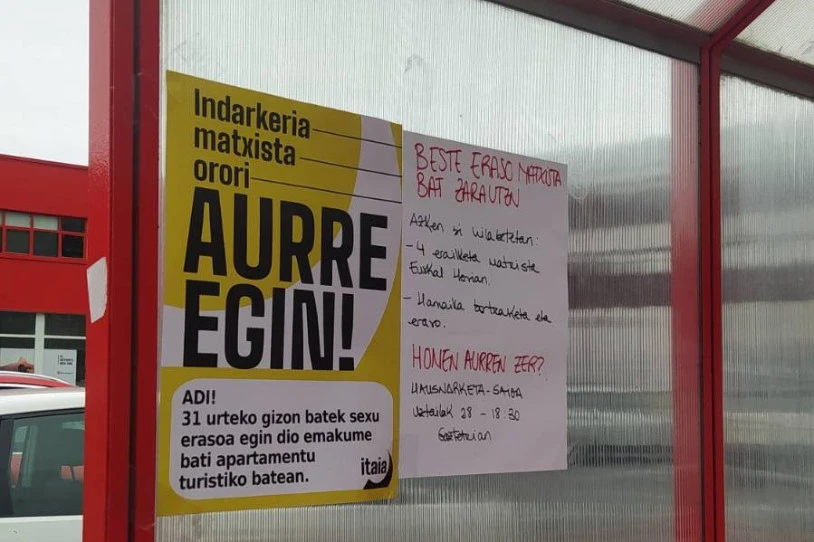 Indarkeria
matxista
orori
AURRE
EGIN!
ADI!
31 urteko gizon batek sexu
erasoa egin dio emakume
bati apartamentu
turistiko batean.
itaia
BESTE ERASO MATXISTA
BAT ZARAUTZN
Azken bi hilabetetan:
- 4 erailketa matxista
Euskal Herrian.
- Hamaika bortxaketa eta
eraso.
HONEN AURREN ZER?
HAUSNARKETA-SAIOA
Uztailak 28 - 18:30
Gaztetxian